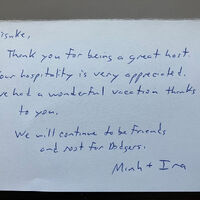 isuke,
Thank you for being a great host.
our hospitality is very appreciated.
e had a wonderful vacation thanks
to you.
We will continue to be friends
and root for Dodgers.
Minh + Ira